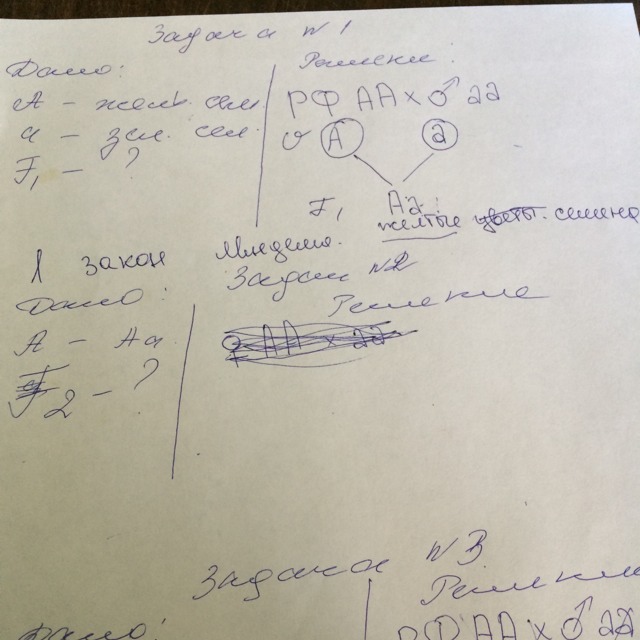 Задача №1
Дано:
Решение:
А - желт. сем.
P ♀ АА × ♂ аа
а - зел. сем.
А а
F₁ - ?
F₁ Аа
желтые семена
1 закон Менделя.
Задача №2
Дано:
Решение
А - Аа
F2 - ?
Задача №3
Дано:
Решение
P ♀ АА × ♂ аа